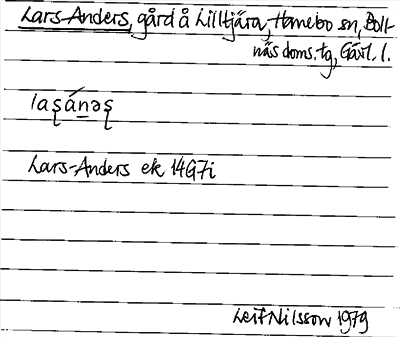 Lars-Anders, gård å Lilltjära, Hamebo sn, Boll-
näs doms. tg, Gävl. l.
laʂánəʂ
Lars-Anders ek 14G7i
Leif Nilsson 1979